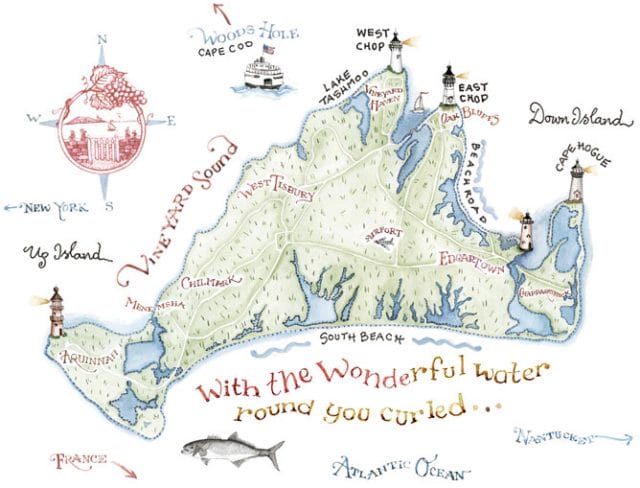 WOODS HOLE
CAPE COD
WEST
CHOP
LAKE
TASHMOO
VINEYARD
HAVEN
EAST
CHOP
OAK BLUFFS
Down Island
CAPE HOGUE
BEACH ROAD
N
W
E
S
VINEYARD Sound
WEST TISBURY
NEW YORK
Up Island
EDGARTOWN
CHAPPAQUIDDICK
CHILMARK
MENEMSHA
AQUINNAH
SOUTH BEACH
With the Wonderful water
round you curled...
FRANCE
ATLANTIC OCEAN
NANTUCKET